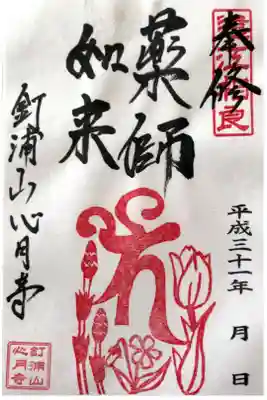 奉修
薬師
如来
平成三十一年 月 日
釘浦山心月寺
釘浦山
心月寺